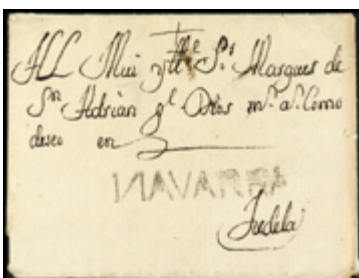 AL Mui Ylle. Sr. Marques de
Sn Adrian gl Dios ms. as. Como
deseo en
NAVARRA
Tudela